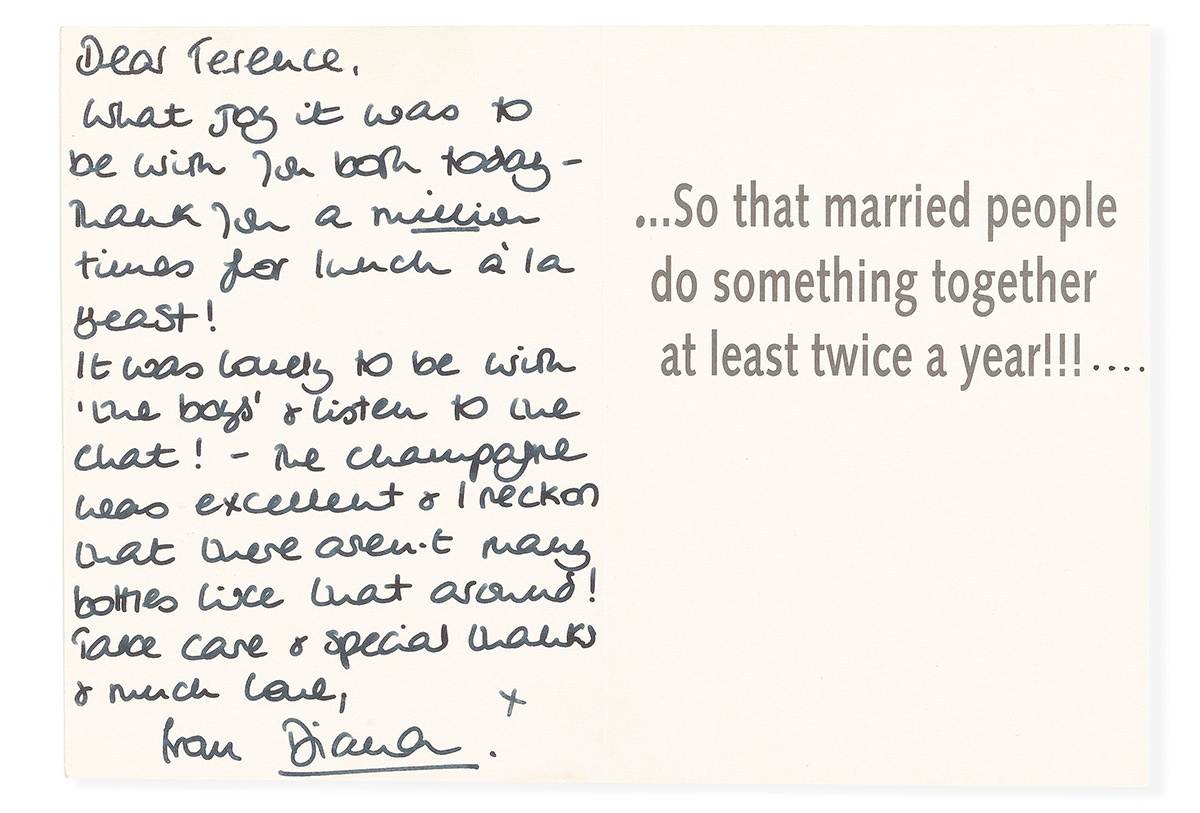 Dear Terence,
What joy it was to
be with you both today -
thank you a million
times for lunch à la
yeast!
It was lovely to be with
'the boys' & listen to the
chat! - The champagne
was excellent & I reckon
that there aren't many
bottles like that around!
Take care & special thanks
& much love,
x
from Diana.
...So that married people
do something together
at least twice a year!!!....